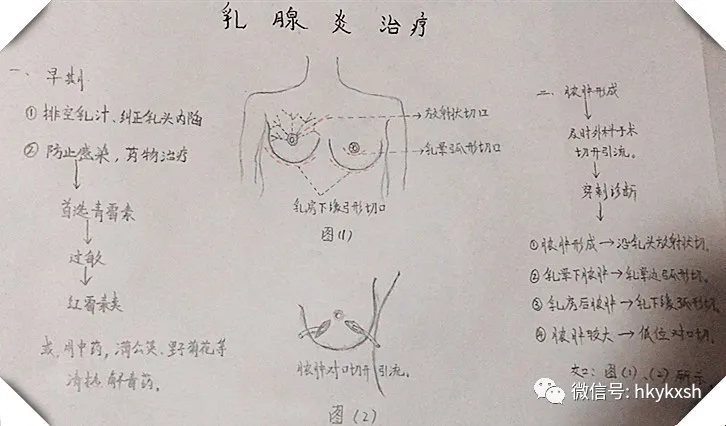 乳腺炎治疗
一、早期
① 排空乳汁、纠正乳头内陷
② 防止感染，药物治疗
首选青霉素
过敏
红霉素类
或用中药，蒲公英、野菊花等
清热解毒药。
放射状切口
乳晕弧形切口
乳房下缘弓形切口
图(1)
脓肿对口切开引流。
图(2)
二、脓肿形成
及时外科手术
切开引流。
穿刺诊断
①脓肿形成→沿乳头放射状切。
②乳晕下脓肿→乳晕边弧形切。
③乳房后脓肿→乳下缘弧形切。
④脓肿较大→低位对口切。
如：图(1)、(2)所示
微信号: hkykxsh